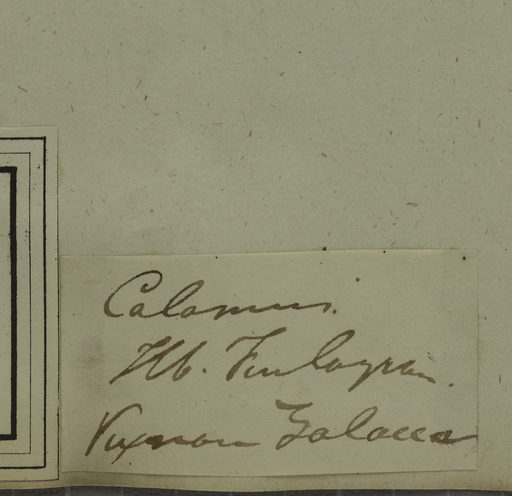 Calamus.
Hb. Finlayson.
Vix non Zalacca